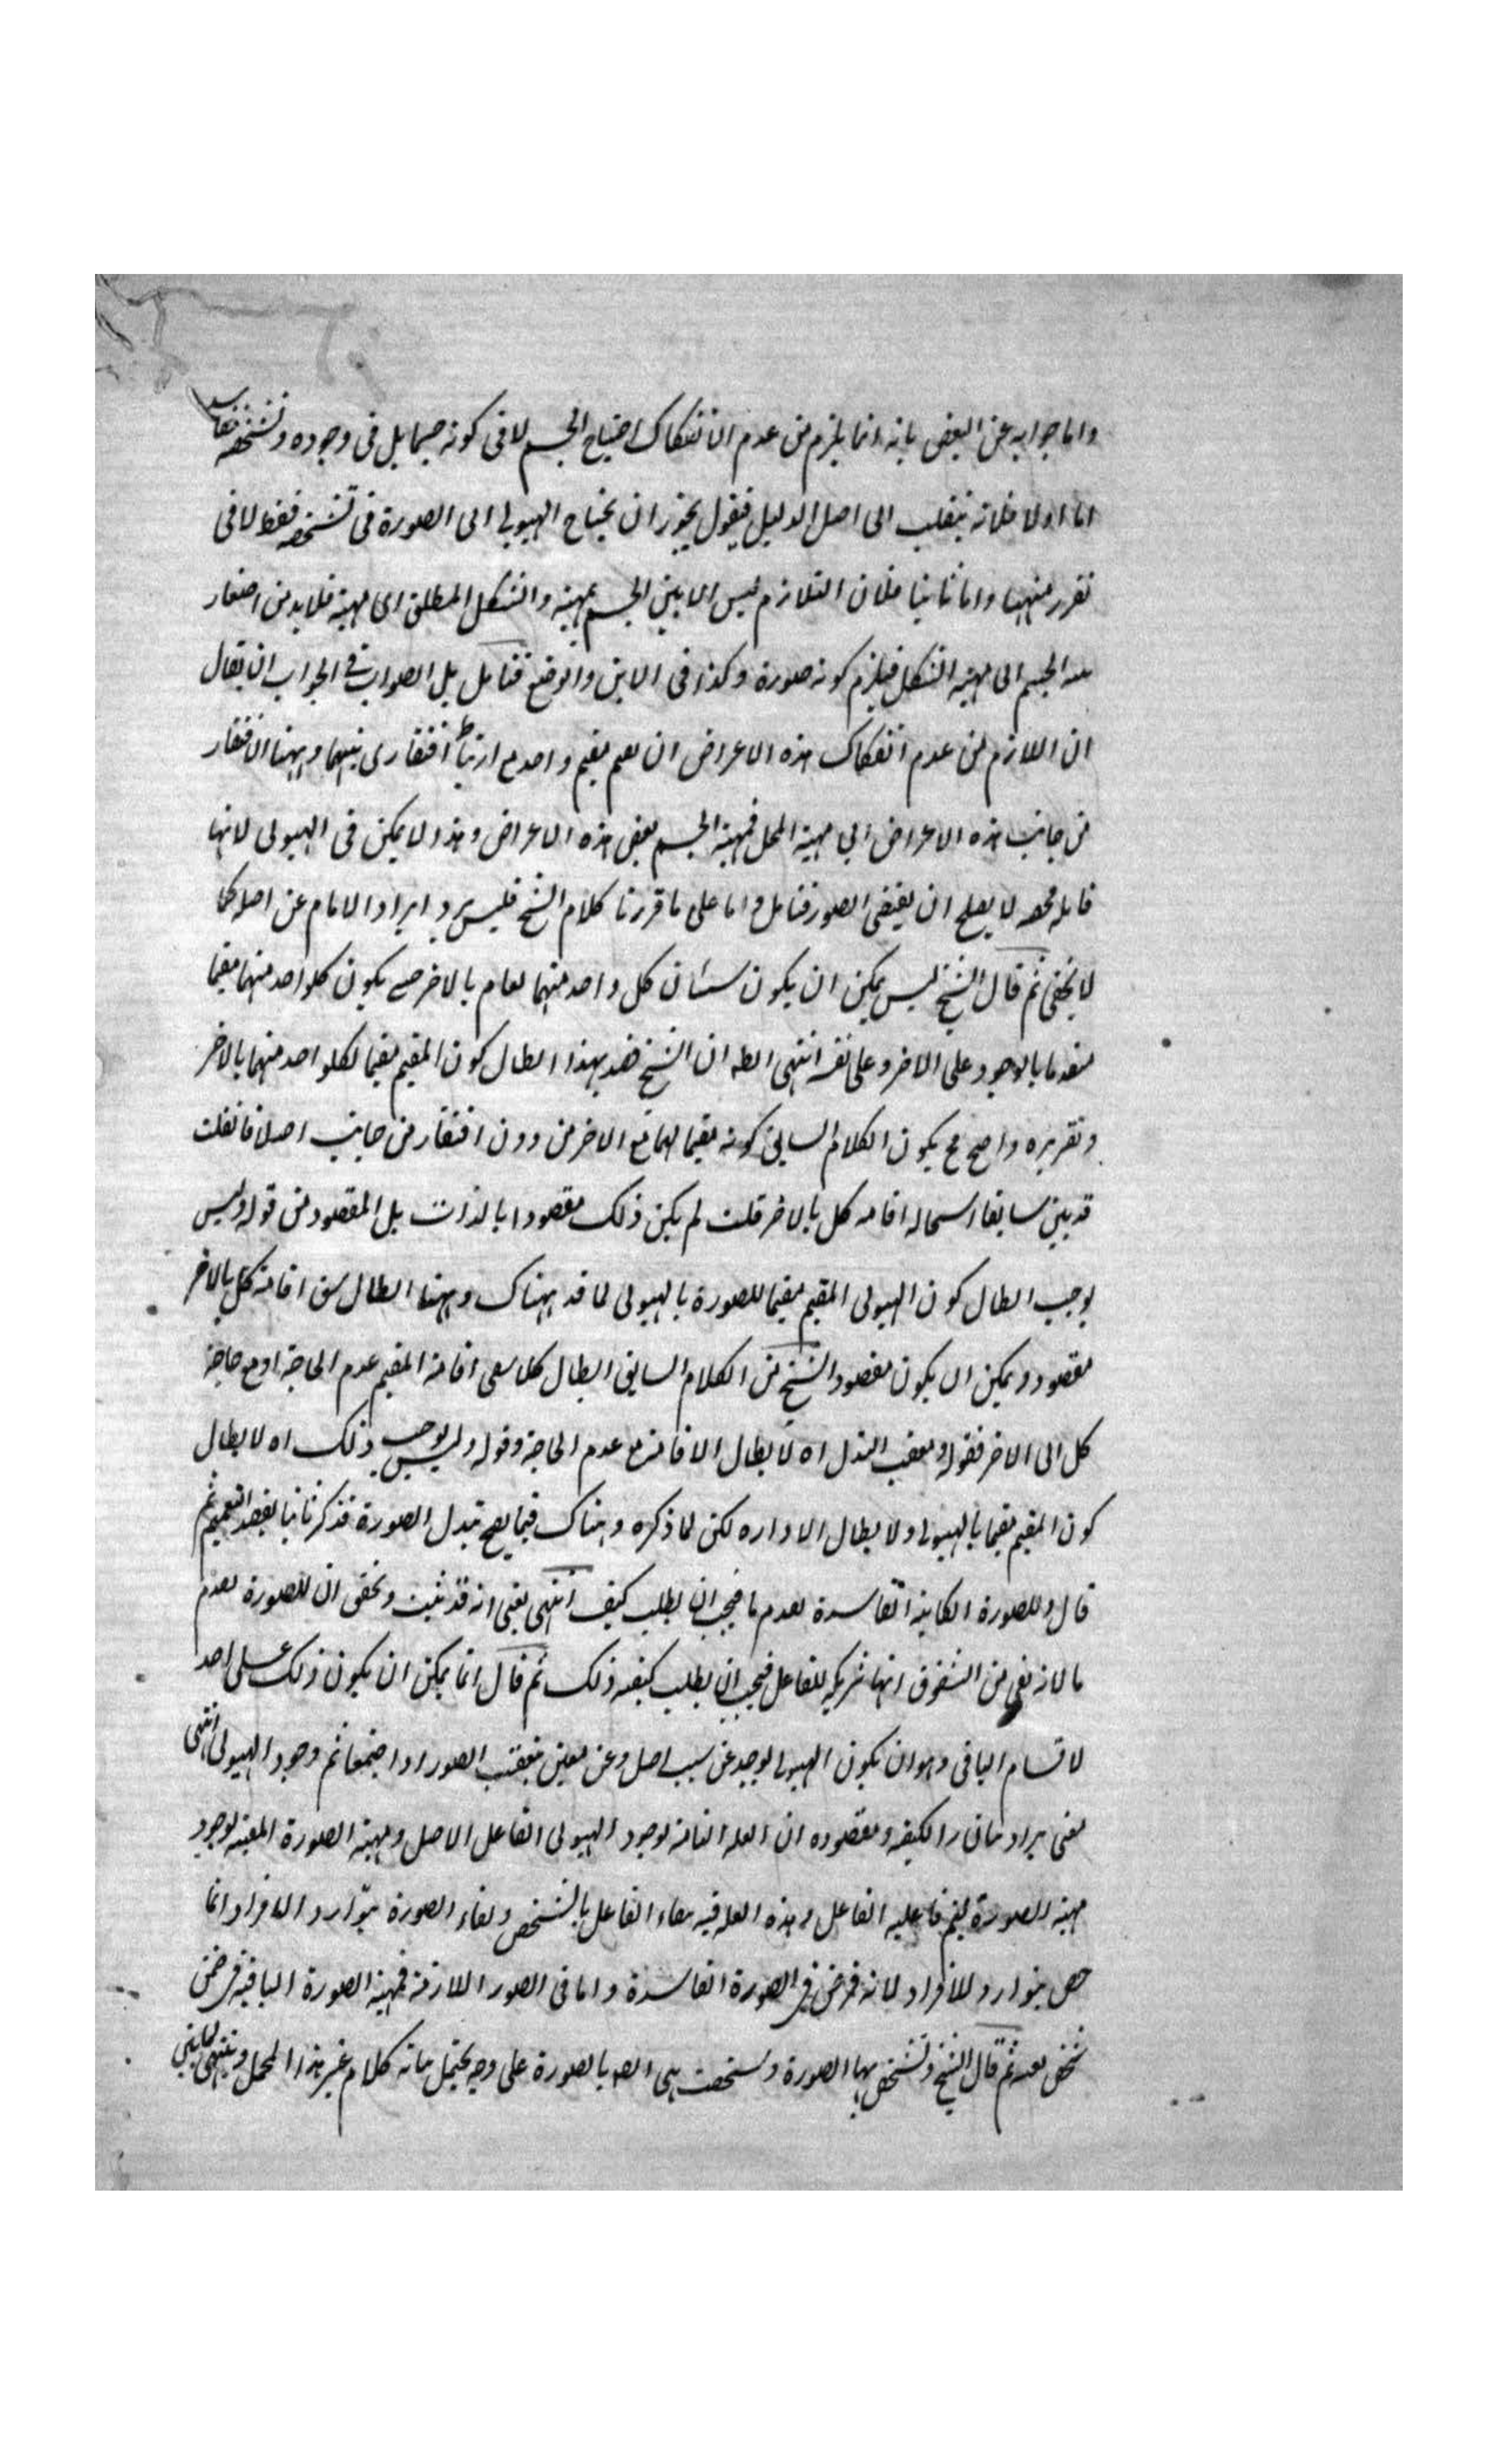 واما جوابه عن البعض بانه انما يلزم من عدم الانفكاك احتياج الجسم لا فى كونه جسما بل فى وجوده وتشخصه ففاسد
اما اولا فلانه ينقلب الى اصل الدليل فيقول يجوز ان يحتاج الهيولى الى الصورة فى تشخصه فقط لا فى
تقرر منهيتها واما ثانيا فلان التلازم ليس الا بين الجسم بمهيته والشكل المطلق اى مهيته فلا بد من افتقار
الجسم الى مهية الشكل فيلزم كونه صورة وكذا فى الاين والوضع فتامل بل الصواب فى الجواب ان يقال
ان اللازم من عدم انفكاك هذه الاعراض ان مقيم واحد مع ارتباط افتقارى بينهما وههنا الافتقار
من جانب هذه الاعراض الى مهية المحل فمهية الجسم بعض هذه الاعراض وهذا لا يمكن فى الهيولى لانها
قابله محضه لا يصلح ان يقتضى الصور فتامل واما على ما قررنا كلام الشيخ فليس يرد ايراد الامام عن اصله كما
لا يخفى ثم قال الشيخ ليس يمكن ان يكون شيئان كل واحد منهما يقام بالاخر حتى يكون كلواحد منهما مقيما
متقدما بالوجود على الاخر وعلى نفسه انتهى الظ ان الشيخ قصد بهذا ابطال كون المقيم مقيما لكلواحد منهما بالاخر
وتقريره واضح فح يكون الكلام السابق كونه مقيما لهما مع الاخر من دون افتقار من جانب اصلا فان قلت
قد بين سابقا استحاله اقامه كل بالاخر قلت لم يكن ذلك مقصودا بالذات بل المقصود من قوله وليس
يوجب ابطال كون الهيولى المقيم مقيما للصورة بالهيولى هناك وههنا ابطال شق اقامة كل بالاخر
مقصود ويمكن ان يكون مقصود الشيخ من الكلام السابق ابطال كلا شقى اقامة المقيم عدم الحاجة او مع حاجة
كل الى الاخر فقوله ومعقب البدل اه لابطال الاقامة مع عدم الحاجة وقوله وليس يوجب ذلك اه لابطال
كون المقيم مقيما بالهيولى ولابطال الاداره لكن لما ذكره هناك فيما يصح تبدل الصورة فذكر ثانيا بقصد التعميم ثم
قال وللصورة الكاينة الفاسدة تقدم ما فيجب ان يطلب كيف انتهى يعنى انه قد ثبت وتحقق ان للصورة تقدم
ما لانه بقى من الشقوق انها شريكه للفاعل فيجب ان يطلب كيفيه ذلك ثم قال انما يمكن ان يكون ذلك على احد
الاقسام الباقى وهو ان يكون الهيولى يوجد عن سبب اصل وعن معين بتعقيب الصور اذا اجتمعا تم وجود الهيولى انتهى
الكيفيه ومقصوده ان العله التامة لوجود الهيولى الفاعل الاصل ومهية الصورة المعينه لوجود
مهية الصورة ليتم فاعليه الفاعل وهذه العله بقاء الفاعل بالتشخص وبقاء الصورة بتوارد الافراد وانما
خص بتوارد الافراد لانه فرض فى الصورة الفاسدة واما فى الصور اللازمة فمهية الصورة الباقية فى ضمن
تشخص ثم قال الشيخ وتشخص بها الصورة وتشخصت هى ايضا بالصورة على وجه يحتمل بيانه كلام غير هذا المحمل وينتهى